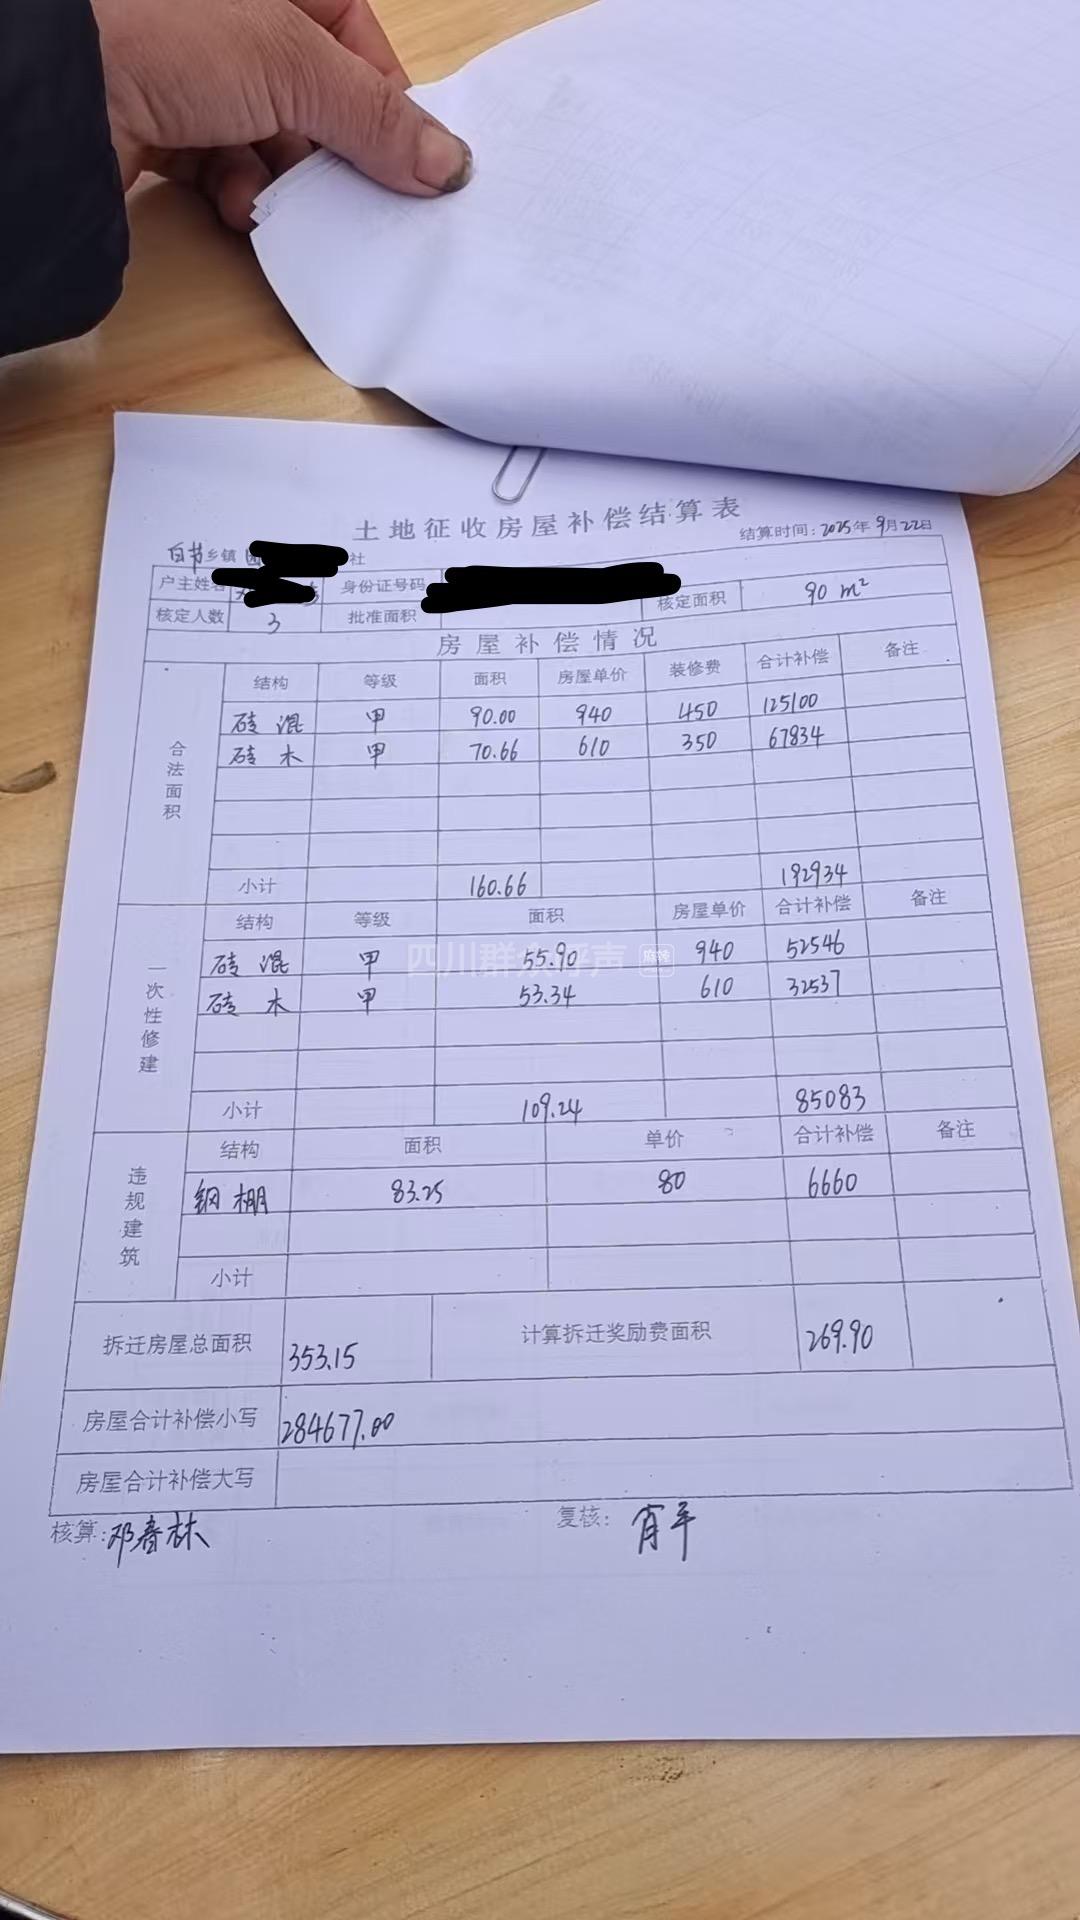 土地征收房屋补偿结算表
结算时间：2025年9月22日
白节乡镇 社
户主姓名 身份证号码
核定人数 3 批准面积 核定面积 90 m²
房屋补偿情况
合法面积
结构 等级 面积 房屋单价 装修费 合计补偿 备注
砖混 甲 90.00 940 450 125100
砖木 甲 70.66 610 350 67834
小计 160.66 192934
一次性修建
结构 等级 面积 房屋单价 合计补偿 备注
砖混 甲 55.90 940 52546
砖木 甲 53.34 610 32537
小计 109.24 85083
违规建筑
结构 面积 单价 合计补偿 备注
钢棚 83.25 80 6660
小计
拆迁房屋总面积 353.15 计算拆迁奖励费面积 269.90
房屋合计补偿小写 284677.00
房屋合计补偿大写
核算：邓春林 复核：肖平
四川群众呼声 麻辣